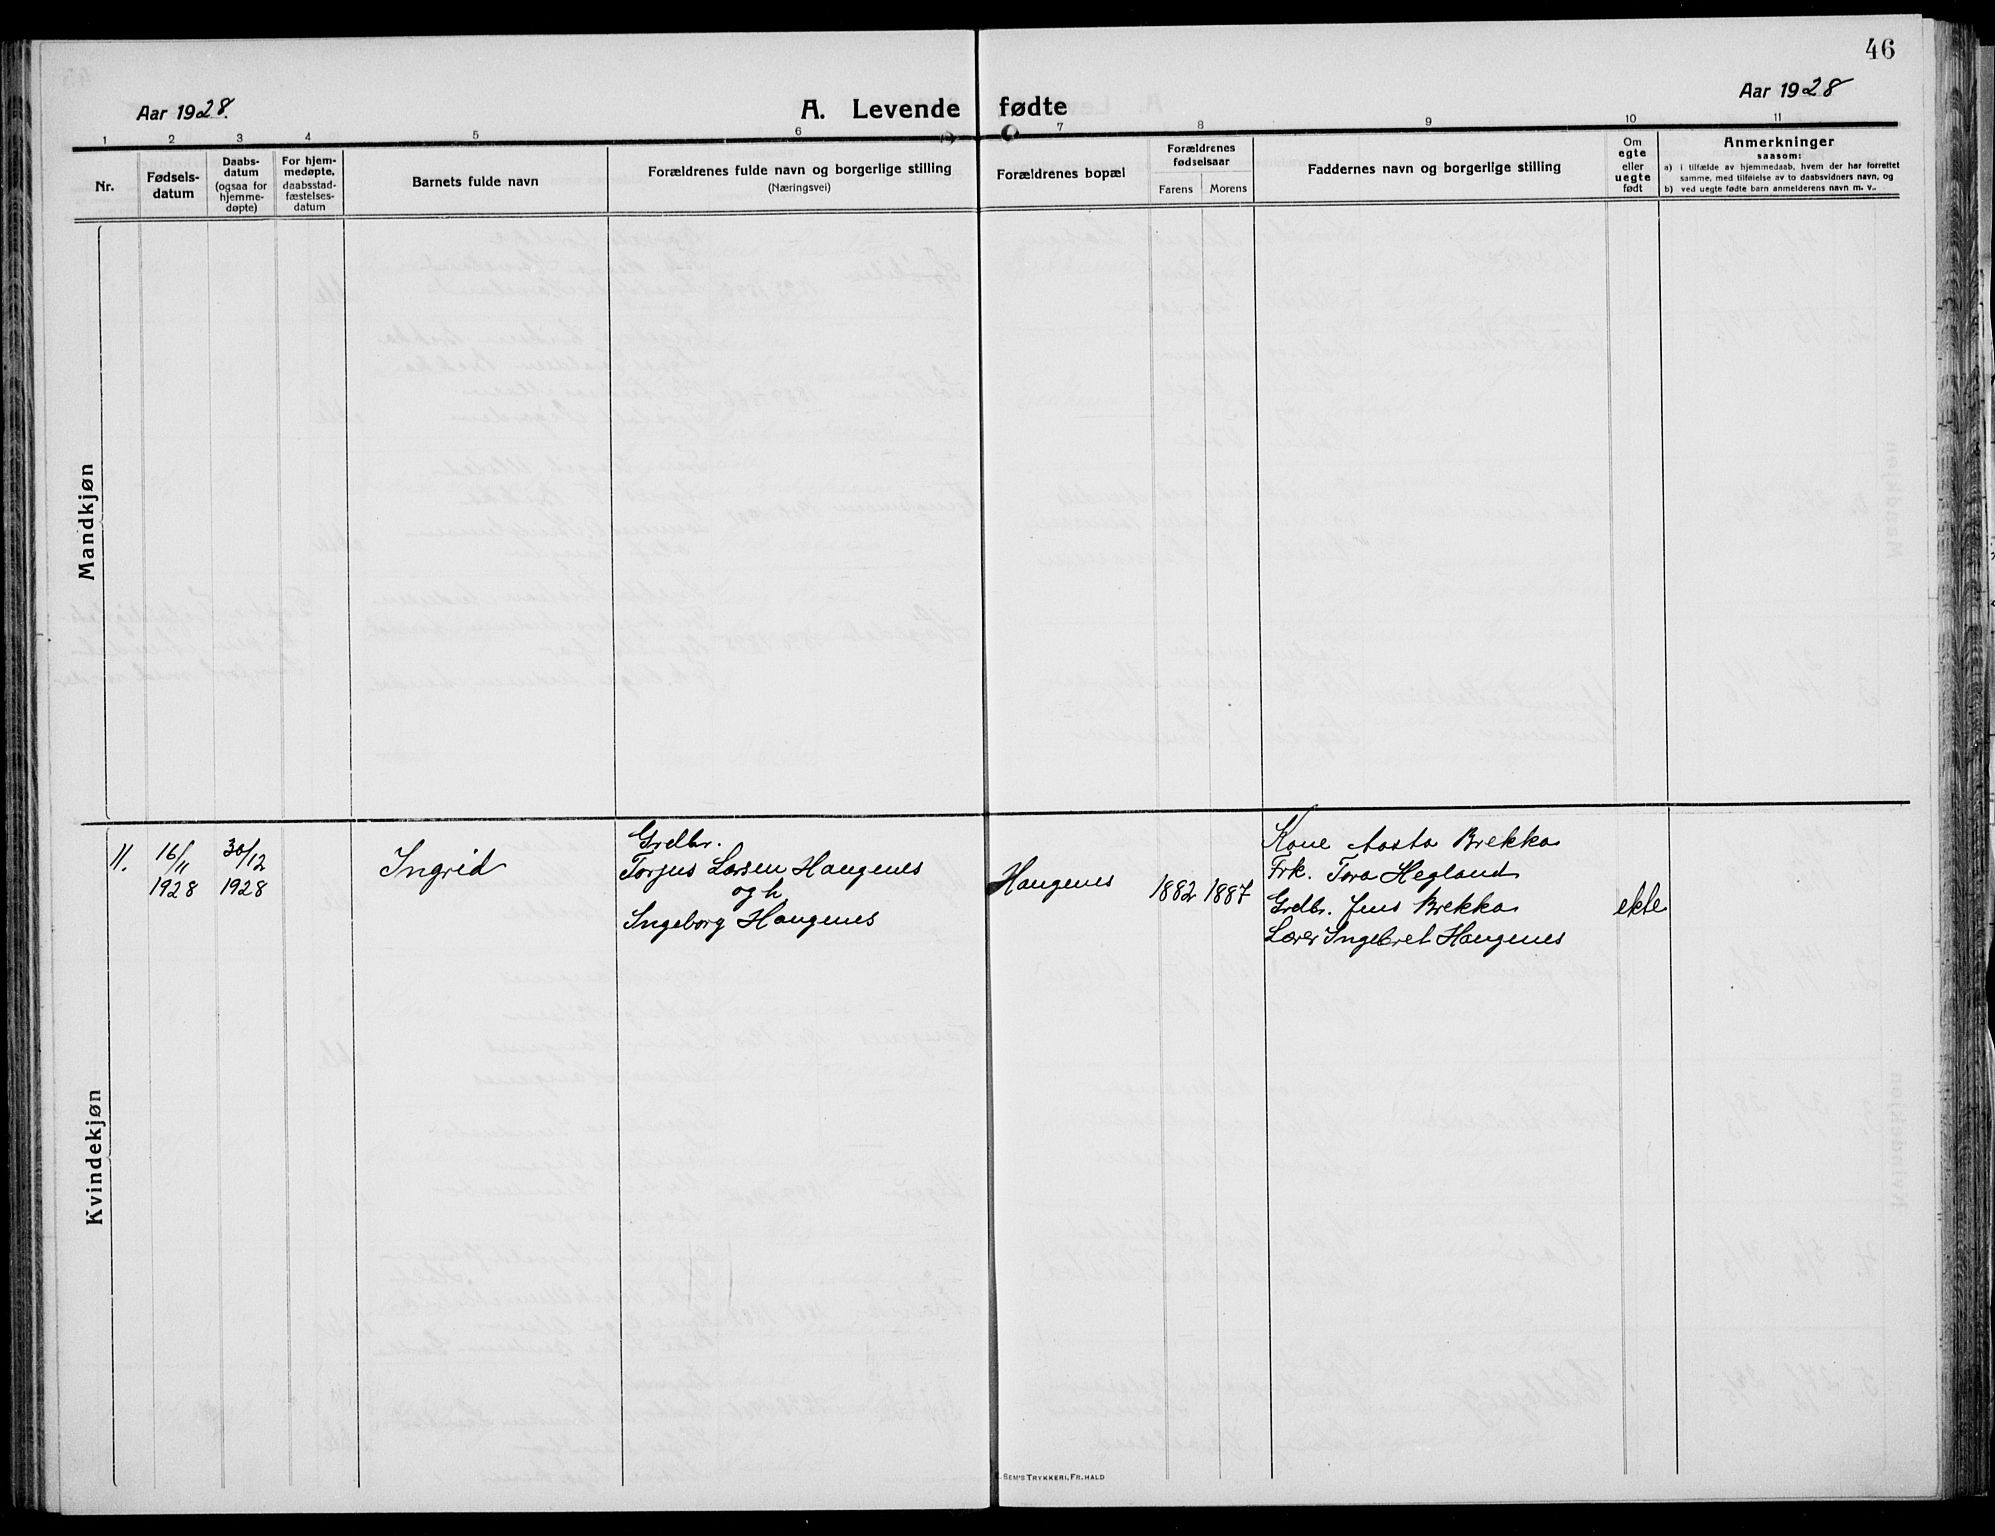 46
Aar 1928.
A. Levende fødte
Aar 1928
1 2 3 4 5 6 7 8 9 10 11
Nr.
Fødsels-
datum
Daabs-
datum
(ogsaa for
hjemme-
døpte)
For hjem-
medøpte,
daabsstad-
fæstelses-
datum
Barnets fulde navn
Forældrenes fulde navn og borgerlige stilling
(Næringsvei)
Forældrenes bopæl
Forældrenes
fødselsaar
Farens Morens
Faddernes navn og borgerlige stilling
Om
egte
eller
uegte
født
Anmerkninger
saasom:
a) i tilfælde av hjemmedaab, hvem der har forrettet
samme, med tilføielse av to daabsvidners navn, og
b) ved uegte fødte barn anmelderens navn m. v..
Mandkjøn
Kvindekjøn
11.
16/11
1928
30/12
1928
Ingrid
Grdbr.
Torjus Larsen Haugenes
og h.
Ingeborg Haugenes
Haugenes
1882 1887
Kone Aasta Brekka
Frk. Tora Hegland
Grdbr. Jens Brekka
Lærer Ingebret Haugenes
ekte
E. SEM'S TRYKKERI, FR. HALD